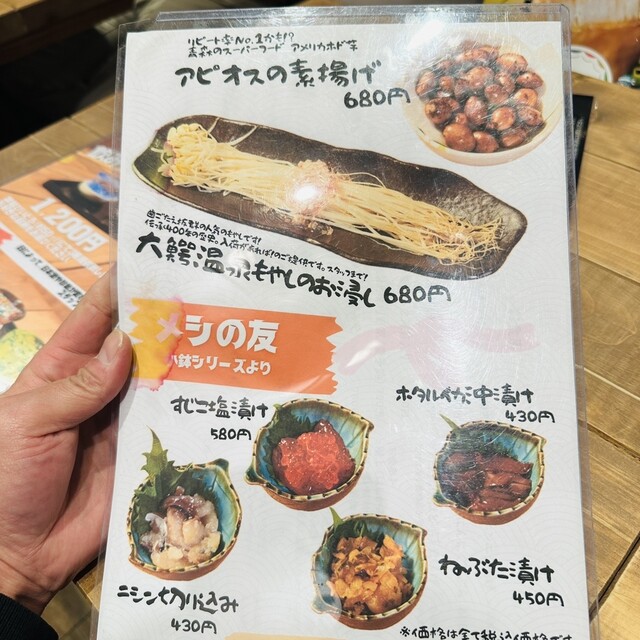 リピート率No.1かも!?
青森のスーパーフード アメリカホド芋
アピオスの素揚げ
680円
歯ごたえ抜群の人気のもやしです!
伝承400年の
入荷があれば!のご提供です。スタッフまで!
大鰐温泉もやしのお浸し 680円
メシの友
小鉢シリーズより
すじこ塩漬け
580円
ホタルイカ沖漬け
430円
ニシン切り込み
430円
ねぶた漬け
450円
※価格は全て税込価格です
1,200円